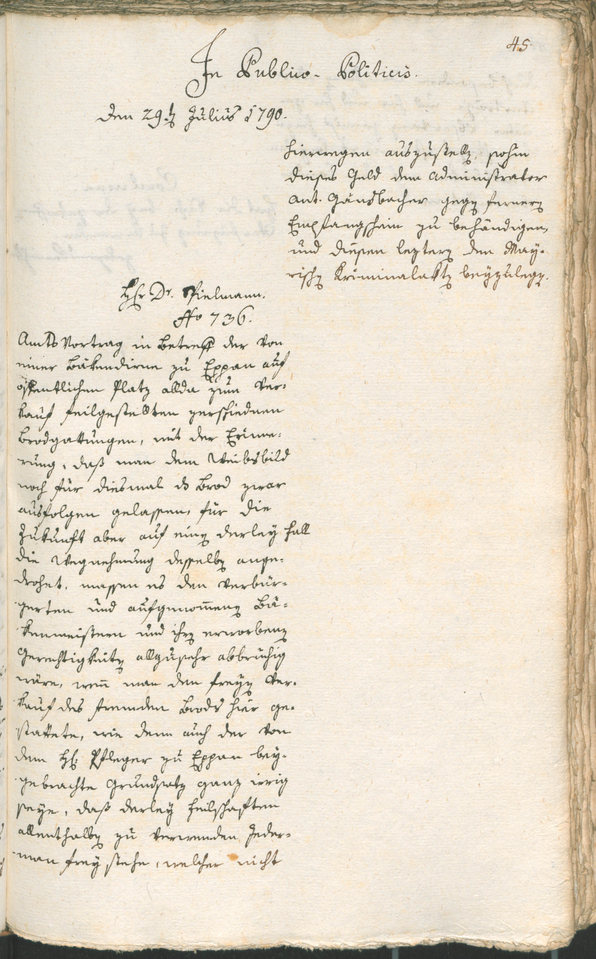 45.
In Publico-Politicis.
den 29t Julius 1790.
hierwegen auszustellen, sohin
dieses Geld dem Administrator
Ant. Gänsbacher gegen fernern
Empfangschein zu behändigen,
und diesen leztern den May-
rischen Kriminalakten beyzulegen.
Hr Dr. Pielmann.
No 736.
Amts Vortrag in Betreff der von
einer Bäkendirne zu Eppan auf
öffentlichen Platz allda zum Ver-
kauf feilgestellten verschiednen
Brodgattungen, mit der Erinne-
rung, daß man dem Weibsbild
noch für diesmal das Brod zwar
ausfolgen gelassen, für die
Zukunft aber auf einen derley Fall
die Wegnehmung desselben ange-
drohet, massen es den verbür-
gerten und aufgenommenen Bä-
kenmeistern und ihren erworbenen
Gerechtigkeiten allzusehr abbrüchig
wäre, wenn man den freyen Ver-
kauf des fremden Brods hier ge-
stattete, wie denn auch der von
dem H. Pfleger zu Eppan bey-
gebrachte Grundsatz ganz irrig
seye, daß derley Feilschaften
allenthalben zu verwenden Jeder-
man frey stehe, welcher nicht